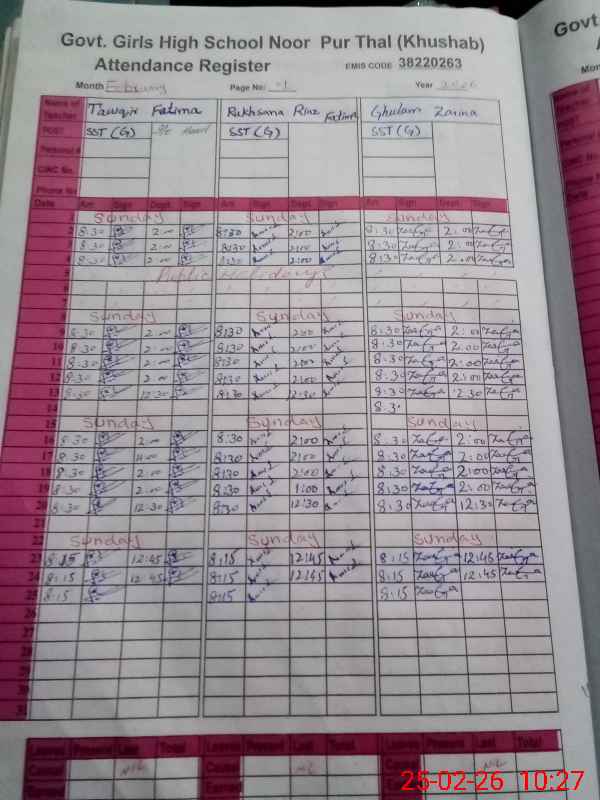 Govt. Girls High School Noor Pur Thal (Khushab)
Attendance Register EMIS CODE 38220263
Month February Page No: 01 Year 2026
Name of Teacher Tawqir Fatima Rukhsana Fatima Ghulam Zarina
POST SST (G) SST (G) SST (G)
Personal #
CNIC No.
Phone No
Date Arr Sign Dept. Sign Arr Sign Dept. Sign Arr Sign Dept. Sign
1 Sunday Sunday Sunday
2 8:30 2:00 8:30 2:00 8:30 2:00
3 8:30 2:00 8:30 2:00 8:30 2:00
4 8:30 2:00 8:30 2:00 8:30 2:00
5 Public Holidays
6
7
8 Sunday Sunday Sunday
9 8:30 2:00 8:30 2:00 8:30 2:00
10 8:30 2:00 8:30 2:00 8:30 2:00
11 8:30 2:00 8:30 2:00 8:30 2:00
12 8:30 2:00 8:30 2:00 8:30 2:00
13 8:30 12:30 8:30 12:30 8:30 12:30
14 8:3
15 Sunday Sunday Sunday
16 8:30 2:00 8:30 2:00 8:30 2:00
17 8:30 8:30 2:00 8:30 2:00
18 8:30 2:00 8:30 2:00 8:30 2:00
19 8:30 2:00 8:30 8:30 2:00
20 8:30 12:30 8:30 12:30 8:30 12:30
21
22 Sunday Sunday Sunday
23 8:15 12:45 8:15 12:45 8:15 12:45
24 8:15 12:45 8:15 12:45 8:15 12:45
25 8:15 8:15 8:15
26
27
28
29
30
31
Leaves Present Last Total Leaves Present Last Total Leaves Present Last Total
Casual Nil Casual Nil Casual Nil
Earned Earned Earned
25-02-26 10:27